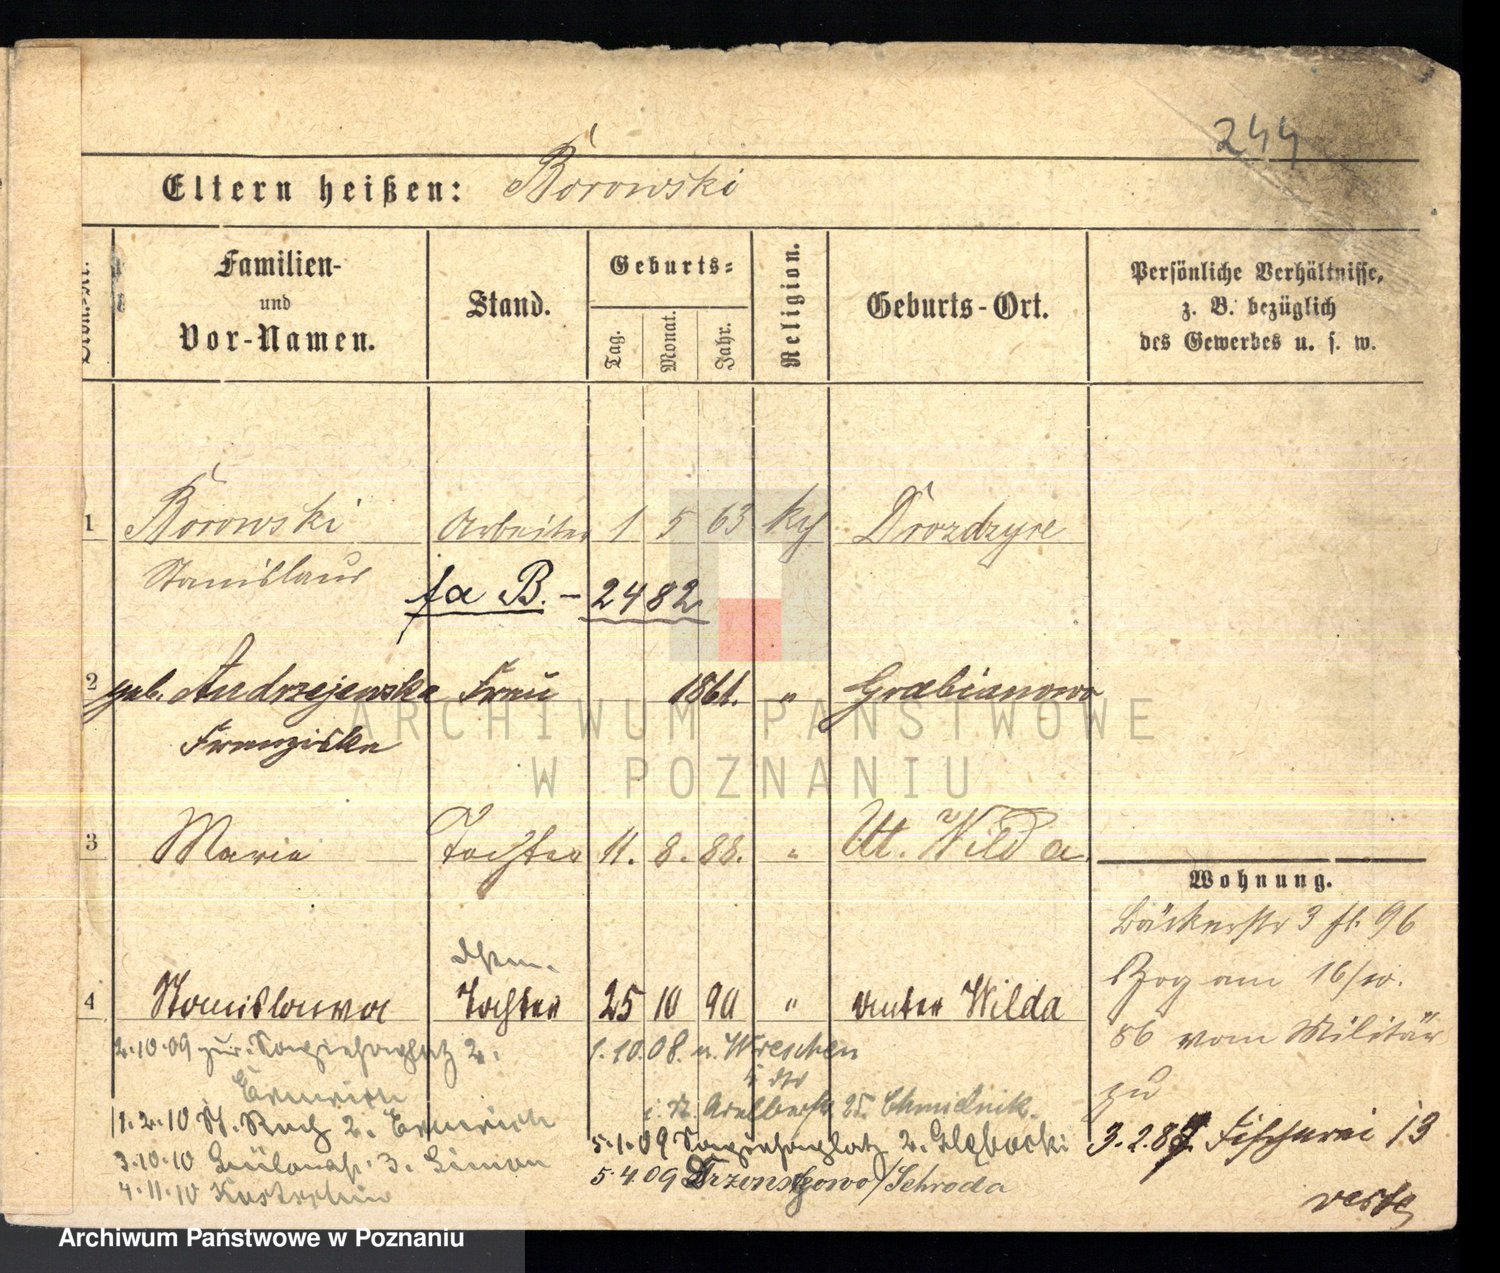 244
Eltern heißen: Borowski
Familien- und Vor-Namen.
Stand.
Geburts-
Tag.
Monat.
Jahr.
Religion.
Geburts-Ort.
Persönliche Verhältnisse,
z. B. bezüglich
des Gewerbes u. s. w.
1 Borowski Arbeiter 1 5 63 kth Drozdzyre
Stanislaus
fa B. – 2482
2 geb. Andrzejewska Frau 1861. " Grabianowo
Franziska
3 Marie Tochter 11. 8. 88. " Unt. Wilda
Wohnung.
Bäckerstr 3 fl. 96
4 Stanislawa Tochter 25 10 90 " Unter Wilda
Zog am 16/10.
86 vom Militär
zu
3.2.87. Fischerei 13
verte
2.10.09 zur. Sapiehaplatz 2.
1.2.10 St. 2.
3.10.10 3. Simon
4.11.10
1.10.08. n. Wreschen
i. St. Adalbertstr 25. Chmielnik.
5.1.09 Sapiehaplatz 2. Glębocki
5.4.09 /Schroda
ARCHIWUM PAŃSTWOWE
W POZNANIU
Archiwum Państwowe w Poznaniu